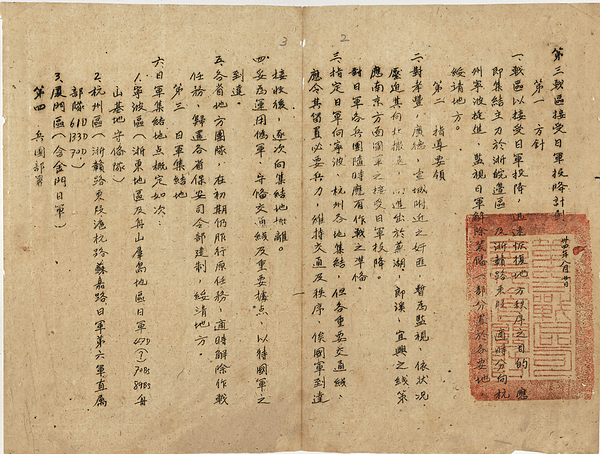 第三戰區接受日軍投降計劃 卅四年八月廿日
第一 方針
一、戰區以接受日軍投降,迅速恢復地方秩序之目的,應
即集結主力於浙皖邊區及浙贛路東段,適時分向杭
州寧波挺進,監視日軍解除裝備,一部分置於各要地,
綏靖地方。
第二 指導要領
二、對孝豐,廣德,宣城附近之奸匪,暫為監視,依狀況
壓迫其向北撤退,以進出於蕪湖,郎溪,宜興之綫策
應南京方面國軍之接受日軍投降。
對日軍各兵團隨時應有作戰之準備。
三、指定日軍向寧波,杭州各地集結,但各重要交通綫,
應令其留置必要兵力,維持交通及秩序,俟國軍到達
2
3
接收後,逐次向集結地撤離。
四、妥為運用偽軍,守備交通綫及重要據點,以待國軍之
到達。
五、各省地方團隊,在初期仍服行原任務,適時解除作戰
任務,歸還各省保安司令部建制,綏靖地方。
第三 日軍集結地
六、日軍集結地點概定如次:
1.寧波區(浙東地區及舟山羣島地區日軍 47D(?) 70Bs 89Bs 舟
山基地守備隊)
2.杭州區(浙贛路東段滬杭路蘇嘉路日軍第六軍直属
部隊 61D 133D 70D)
3.廈門區(含金門日軍)
第四 兵團部署